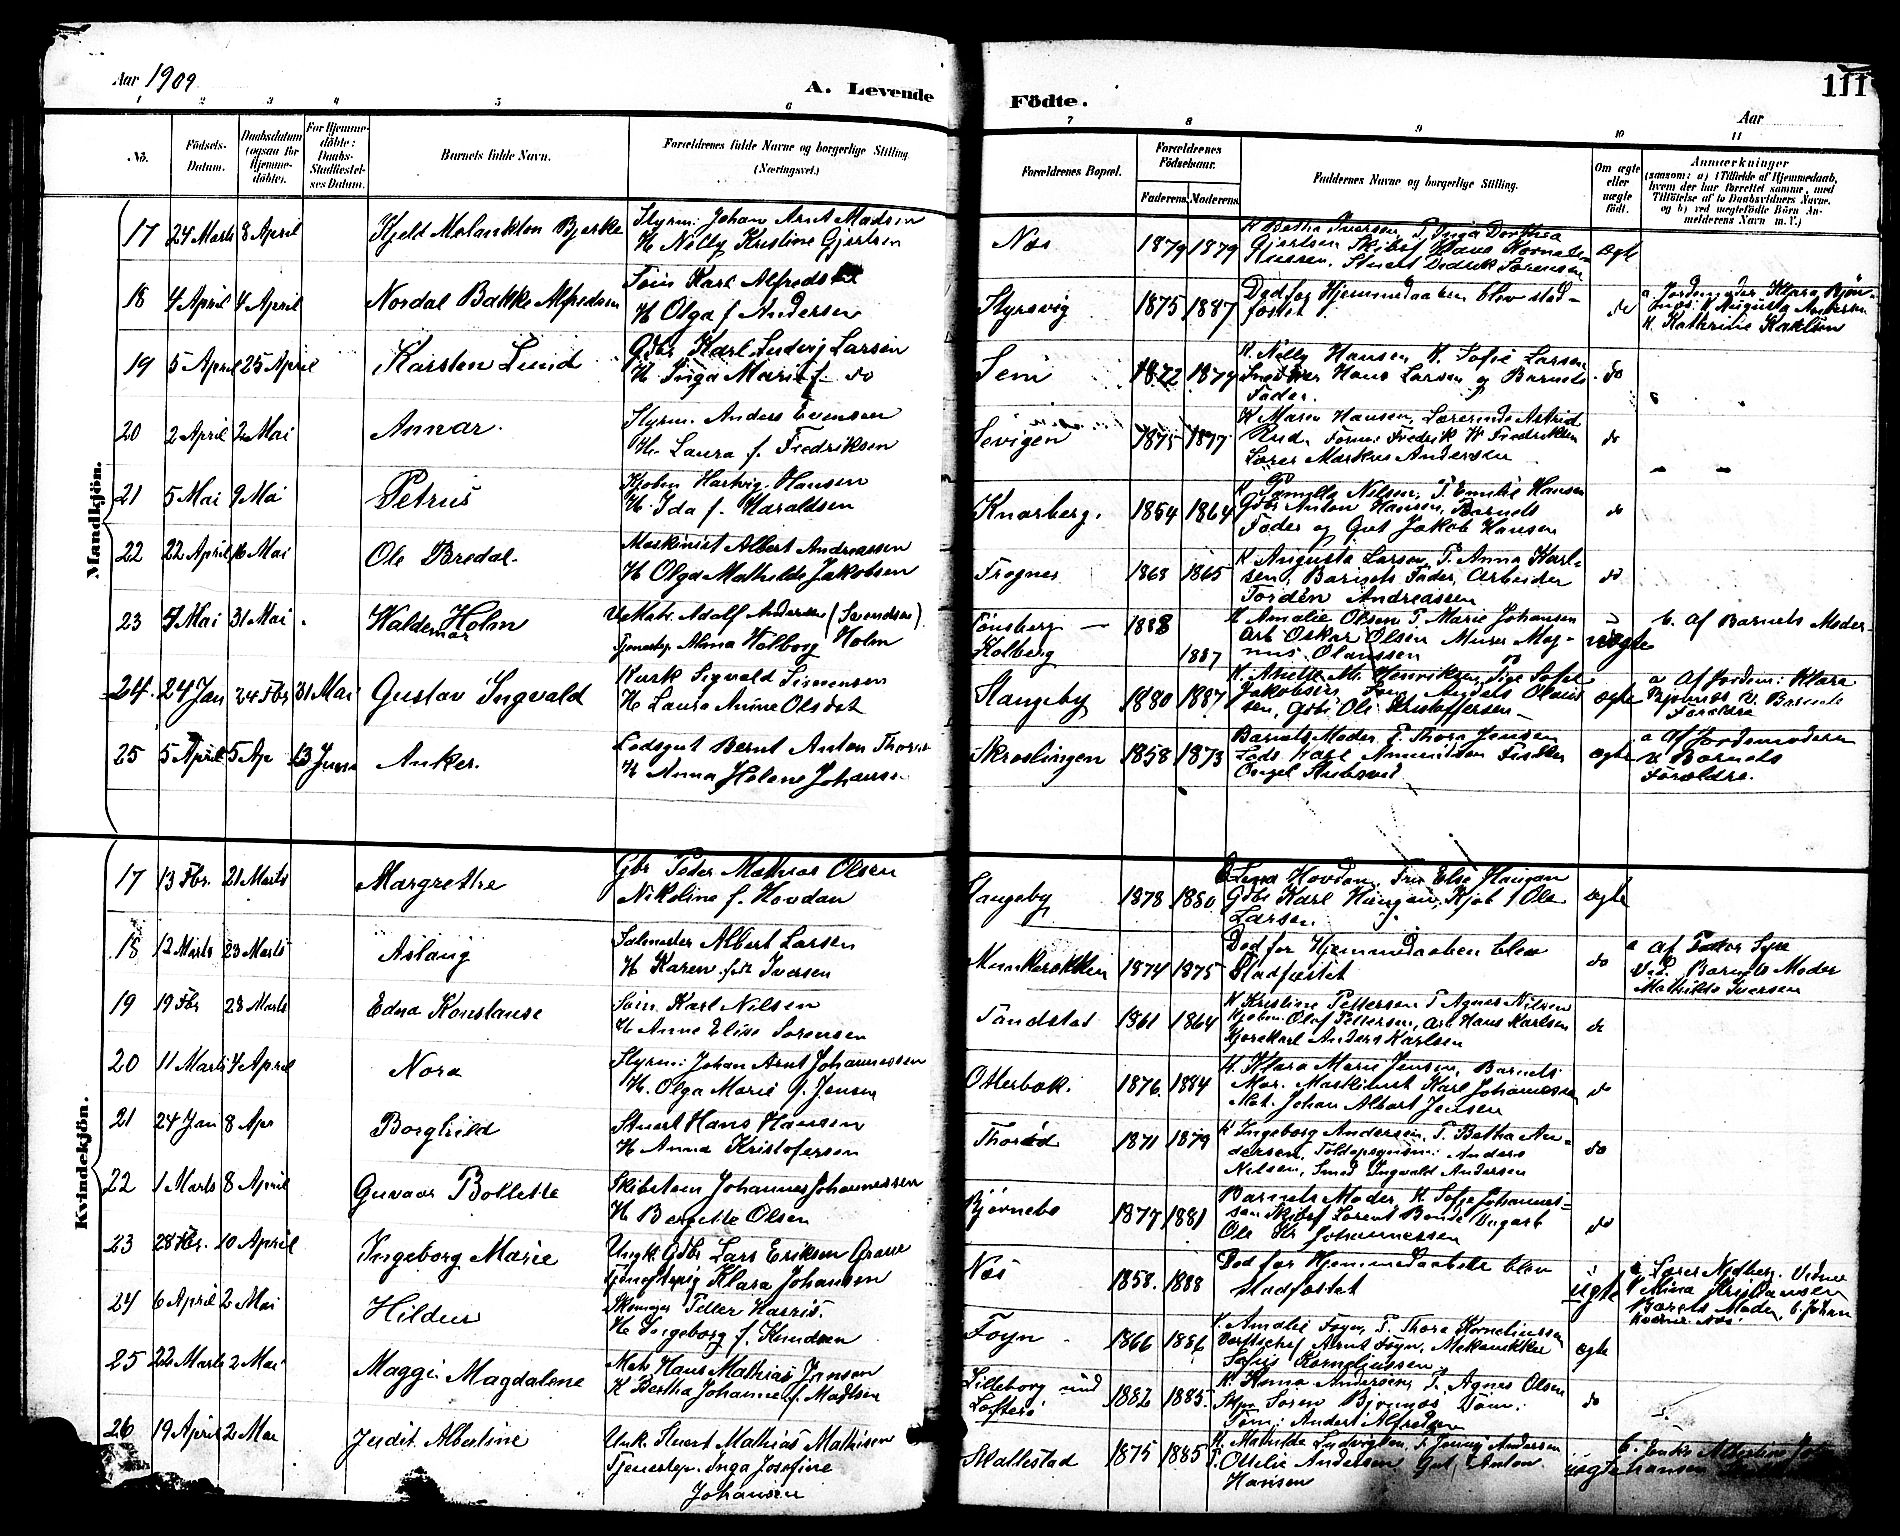 Aar 1909.
A. Levende Födte.
111
Aar
1 2 3 4 5 6 7 8 9 10 11
No.
Födsels-Datum.
Daabsdatum (ogsaa for Hjemme-döbte).
For Hjemme-döbte: Daabs-Stadfæstel-ses Datum.
Barnets fulde Navn.
Forældrenes fulde Navne og borgerlige Stilling (Næringsvei.)
Forældrenes Bopæl.
Forældrenes Födselsaar.
Faderens. Moderens.
Faddernes Navne og borgerlige Stilling.
Om ægte eller uægte födt.
Anmærkninger
(saasom: a) i Tilfælde af Hjemmedaab, hvem der har forrettet samme, med Tilföielse af to Daabsvidners Navne, og b) ved uægtefödte Börn An-melderens Navn m. V.)
Mandkjön.
17 24 Marts 8 April Kjeld Melankton Bjerke Styrm: Johan Arnt Madsen
H Nelly Kristine Gjertsen
Nes 1879 1879 K Betha Iversen, P. Inga Dorthea
Gjertsen Skibsf Hans Kornelius
Stuert Didrik Sörensen ægte
18 4 April 4 April Nordal Bakke Alfredsen Karl Alfredsen
H Olga f Andersen
Styrsvig 1875 1887 Död for Hjemmedaaben blev stad-
fæstet do a Jordemoder Klara Bjön-
nes. V Augusta Andersen
K. Kathrine
19 5 April 25 April Karsten Lund Gdbr Karl Ludvig Larsen
H Inga Marie f. do
Sem 1872 1874 K. Nelly Hansen, K. Sofie Larsen
Hans Larsen og Barnets
Fader. do
20 2 April 2 Mai Annar. Styrm. Anders Evensen
H. Laura f. Fredriksen
1875 1877 K Maren Hansen, Lærerinde Astrid
Rud. Fredrik W Fredriksen
Lærer Markus Andersen do
21 5 Mai 9 Mai Petrus Hartvig Hansen
H. Ida f. Haraldsen
Knarberg. 1864 1864 K Pernille Nilsen, P. Emilie Hansen
Gdbr Anton Hansen, Barnets
Fader og Gut Jakob Hansen do
22 22 April 16 Mai Ole Bredal. Maskinist Albert Andreassen
H Olga Mathilde Jakobsen
Trognes 1868 1865 K Augusta Larsen, P. Anna Karl-
sen, Barnets Fader, Arbeider
Tordén Andreassen do
23 4 Mai 31 Mai Waldemar Holm Adolf Andersen (Svendsen)
Tjenestep. Alma Wilborg Holm
Tönsberg —
Kolberg 1888
1887 K Amalie Olsen P. Marie Johansen
Arb Oskar Olsen Murer Mag-
nus Olaussen uægte b. Af Barnets Moder
24. 24 Jan 24 Fbr 31 Mai Gustav Ingvald Sigvald Simensen
H Laura Anine Olsdat
Slangeby 1880 1887 K. Henriksen, Pige Sofie
Jakobsen, Andets Olaus
sen, Gdbr Ole Kristoffersen ægte a Af Jordem: Klara
Bjönnes V. Barnets
Foreldre
25 5 April 5 Ap 13 Juni Anker. Lodsgut Bernt Anton Thorsen
H Anna Helene Johansen
Skraslingen 1858 1873 Barnets Moder P. Thora Jensen
Lods Karl Amundsen Fisker
Engel ægte a Af Jordemoderen
V. Barnets
Forældre.
Kvindekjön.
17 13 Fbr. 21 Marts Margrethe Gbr Peder Mathias Olsen
Nikoline f. Hovdan
Slangeby 1878 1880 Lena Hovdan, Fru Else Haugan
Gdbr Karl Haugan, Ole
Larsen. ægte
18 12 Marts 23 Marts Aslaug Salmester Albert Larsen
H Karen født Iversen
Munkerekken 1874 1875 Död for Hjemmedaaben blev
Stadfæstet do a af Pastor
Vid. Barnets Moder
Mathilde Iversen
19 19 Fbr 28 Marts Edna Konstanse Karl Nilsen
H Anne Elise Sorensen
Sandstad 1861 1864 K Kristine Pettersen P Agnes Nilsen
Olaf Pettersen, Arb Hans Karlsen
Anders Karlsen do
20 11 Marts 4 April Nora Styrm: Johan Arnt Johannessen
H. Olga Marie G. Jensen
Otterbek. 1876. 1884 K. Klara Marie Jensen, Barnets
Mor. Maskinist Karl Johannessen
Mat. Johan Albert Jensen do
21 24 Jan 8 Apr Borghild Stuert Hans Hansen
H Anna Kristofersen
Thoröd 1871 1879 K Ingeborg Andersen, P. Betha An-
dersen, Anders
Nilsen, Smed Ingvald Andersen do
22 1 Marts 8 April Gunvor Bollette Skibstøm Johannes Johannessen
H Bergitte Olsen
Bjørnebo 1877 1881 Barnets Moder, K Sofie Johannes-
sen Skibsf Lorents Bonde Ungarb
Ole Kr Johannessen do
23 28 Fbr. 10 April Ingeborg Marie Ungk Gdbr Lars Eriksen
Klara Johansen
Nes 1858. 1888 Död før Hjemmedaaben blev
stadfæstet uægte a Lærer Nydberg. Vidner
V Mina Kristiansen
Barnets Moder, b. Johan
24 6 April 2 Mai Hildur Skomager Petter Harris.
H. Ingeborg f. Knudsen
Foyn 1866 1886 K. Amalie Foyn, P. Thora Korneliussen
Værftschef Arnt Foyn, Mekanikker
Korneliussen ægte
25 22 Marts 2 Mai Maggi Magdalene Mat Hans Mathias Jensen
K Bertha Johanne f. Madsen
Lilleborg
1882 1885. K Anna Andersen, P. Agnes Olsen
Skpr Soren Bjönnes Töm:
Töm: Anders Alfredsen do
26 19 April 2 Mai Judit Albertine Unk. Stuert Mathias Mathisen
Tjenestep. Inga Josefine
Johansen
Skallestad 1875 1885 K Mathilde Ludvigsen, P Jenny Andersen
P. Ottelie Andersen Gut, Anton
Hansen uægte b. Enke Albertine Jo-
hansen